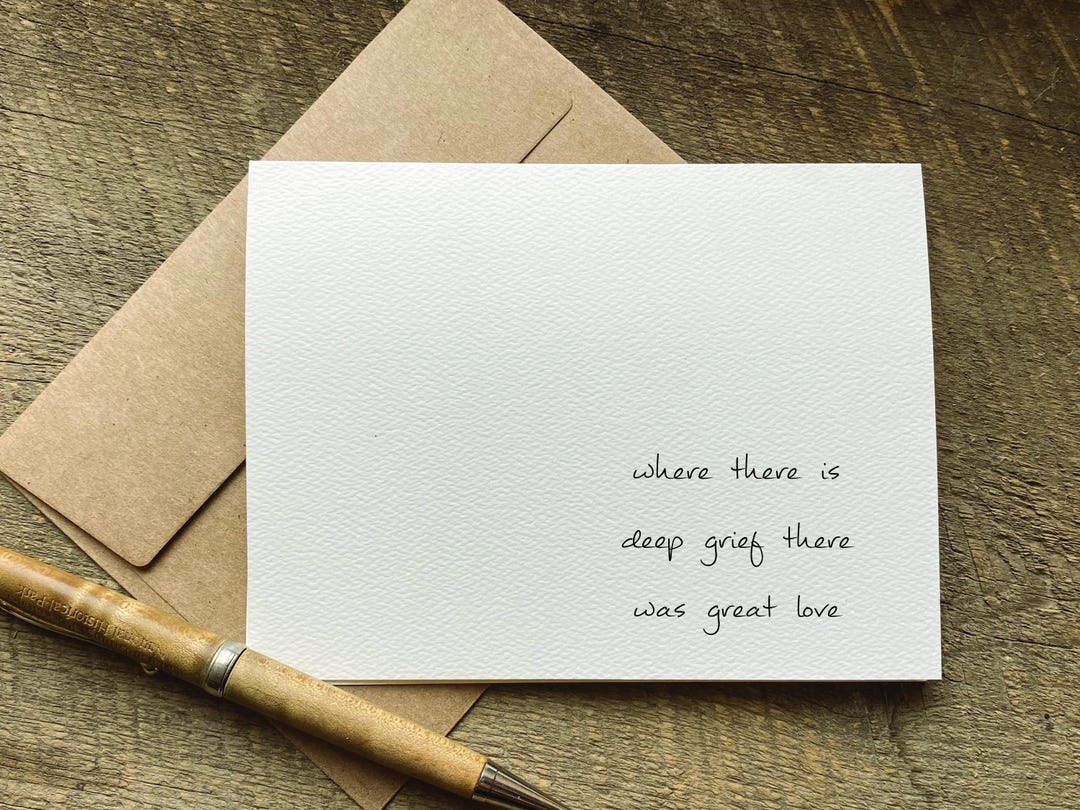 where there is
deep grief there
was great love
Historical Park